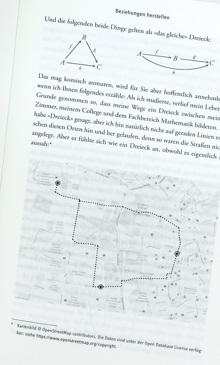 Beziehungen herstellen
Und die folgenden beide Dinge gelten als »das gleiche« Dreieck:
B
f g
A h C
A f B g C
h
Das mag komisch anmuten, wird für Sie aber hoffentlich annehmb
wenn ich Ihnen folgendes erzähle: Als ich studierte, verlief mein Leben
Grunde genommen so, dass meine Wege ein Dreieck zwischen mei
Zimmer, meinem College und dem Fachbereich Mathematik bildeten.
habe »Dreieck« gesagt, aber ich bin natürlich nicht auf geraden Linien
schen diesen Orten hin und her gelaufen, denn so waren die Straßen nic
angelegt. Aber es fühlte sich wie ein Dreieck an, obwohl es eigentlich
aussah:*
* Kartenbild © OpenStreetMap contributors. Die Daten sind unter der Open Database License verfüg-
bar: siehe https://www.openstreetmap.org/copyright.